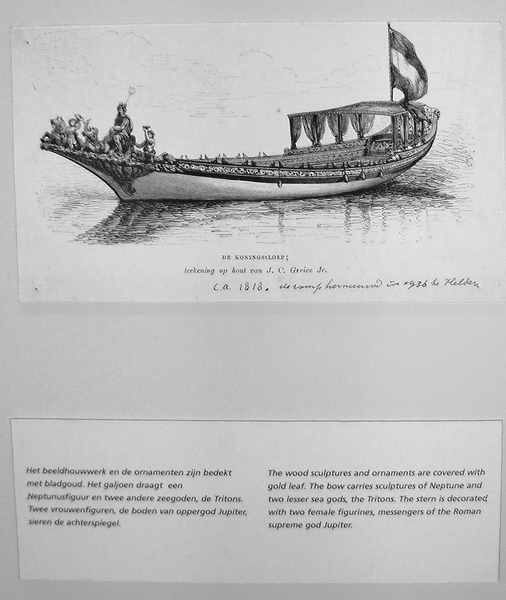 DE KONINGSSLOEP;
teekening op hout van J. C. Greive Jr.
ca. 1818. de romp vernieuwd in 1936 te Helder
Het beeldhouwwerk en de ornamenten zijn bedekt
met bladgoud. Het galjoen draagt een
Neptunusfiguur en twee andere zeegoden, de Tritons.
Twee vrouwenfiguren, de boden van oppergod Jupiter,
sieren de achterspiegel.
The wood sculptures and ornaments are covered with
gold leaf. The bow carries sculptures of Neptune and
two lesser sea gods, the Tritons. The stern is decorated
with two female figurines, messengers of the Roman
supreme god Jupiter.